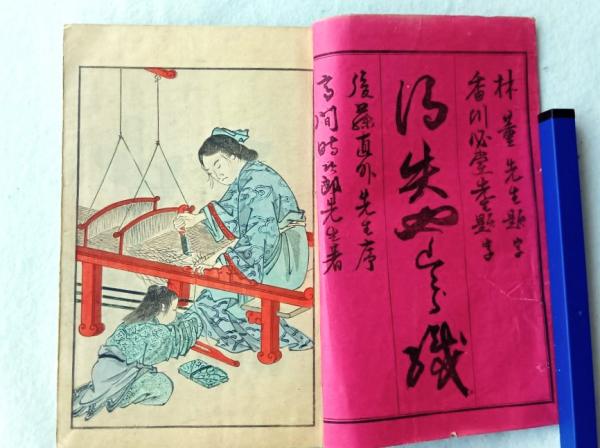 林 董 先生題字
香川必堂先生題字
得失 織
後藤直外先生序
高間時次郎先生著